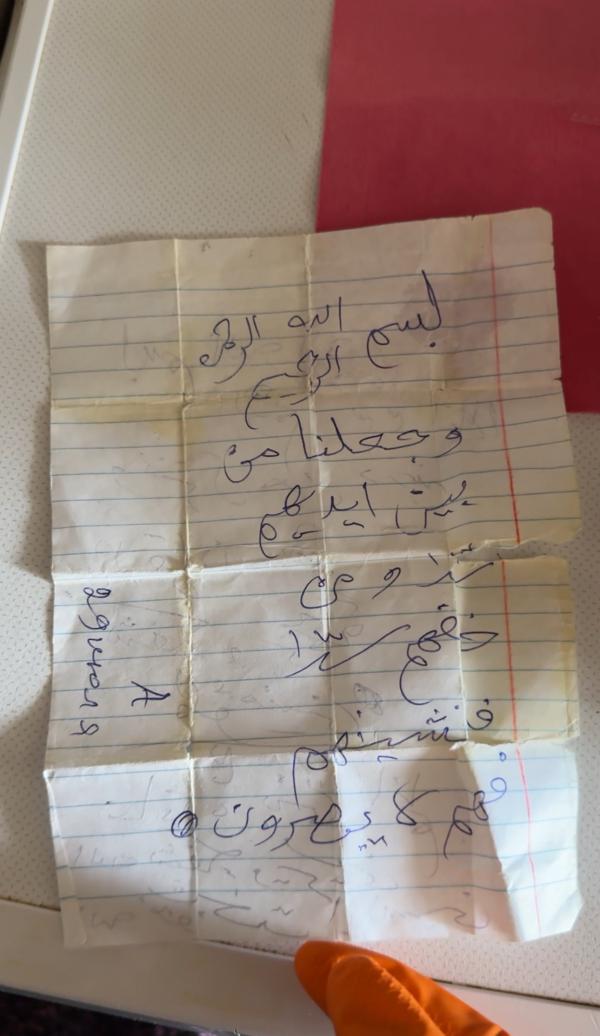 بسم الله الرحمن
الرحيم
وجعلنا من
بين ايديهم
سدا ومن
خلفهم سدا
فاغشينهم
فهم لا يبصرون
A